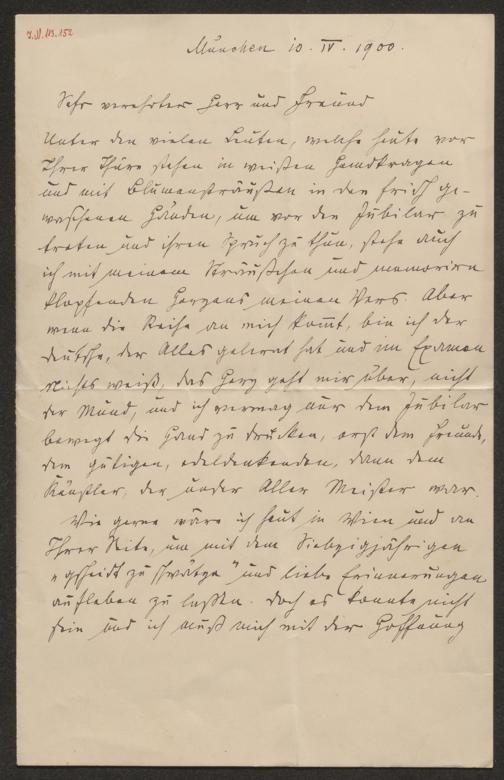 I.N. 113.152
München 10. IV. 1900.
Sehr verehrter Herr und Freund
Unter den vielen Leuten, welche heute vor
Ihrer Thüre stehen in weißen Hemdkragen
und mit Blumensträußen in den frisch ge-
waschenen Händen, um vor den Jubilar zu
treten und ihren Spruch zu thun, stehe auch
ich mit meinem Sträußchen und memorire
klopfenden Herzens meinen Vers. Aber
wenn die Reihe an mich kommt, bin ich der
deutsche, der Alles gelernt hat und im Examen
nichts weiß, das Herz geht mir über, nicht
der Mund, und ich vermag nur dem Jubilar
bewegt die Hand zu drücken, erst dem Freunde,
dem gütigen, edeldenkenden, dann dem
Künstler, der unser Aller Meister war.
Wie gerne wäre ich heut in Wien und an
Ihrer Seite, um mit dem Siebzigjährigen
"gscheidt zu schwätze" und liebe Erinnerungen
aufleben zu lassen. Doch es konnte nicht
sein und ich muß mich mit der Hoffnung